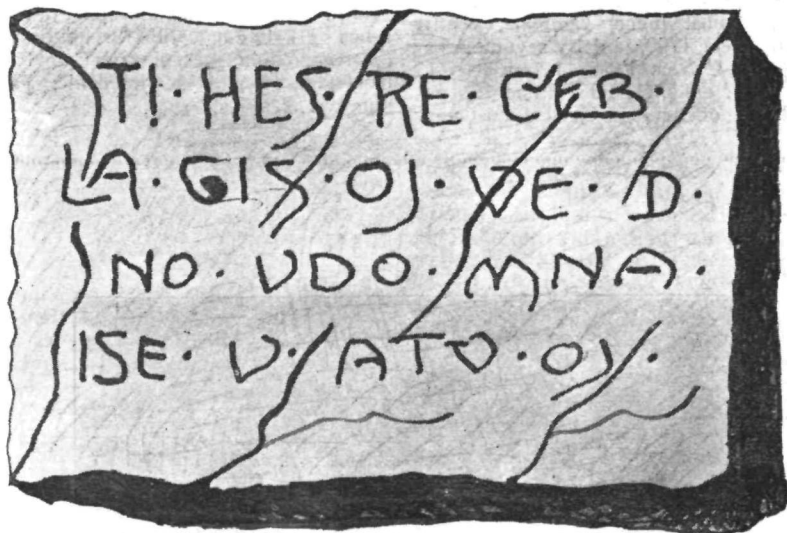 TI· HES· RE· C'EB·
LA· GIS· OJ· VE· D·
NO· VDO· MNA·
ISE· V· ATV· OJ·